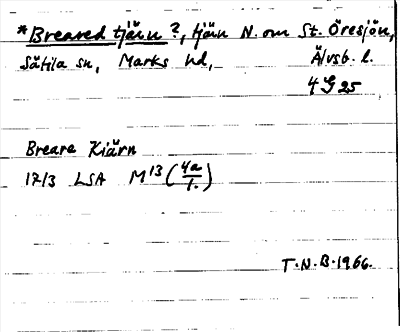 *Breared tjärn?, tjärn N. om St. Öresjön,
Sätila sn, Marks hd, Älvsb. l.
4 G 25
Breare Kiärn
1713 LSA M13 (4a/1.)
T.N.B. 1966.